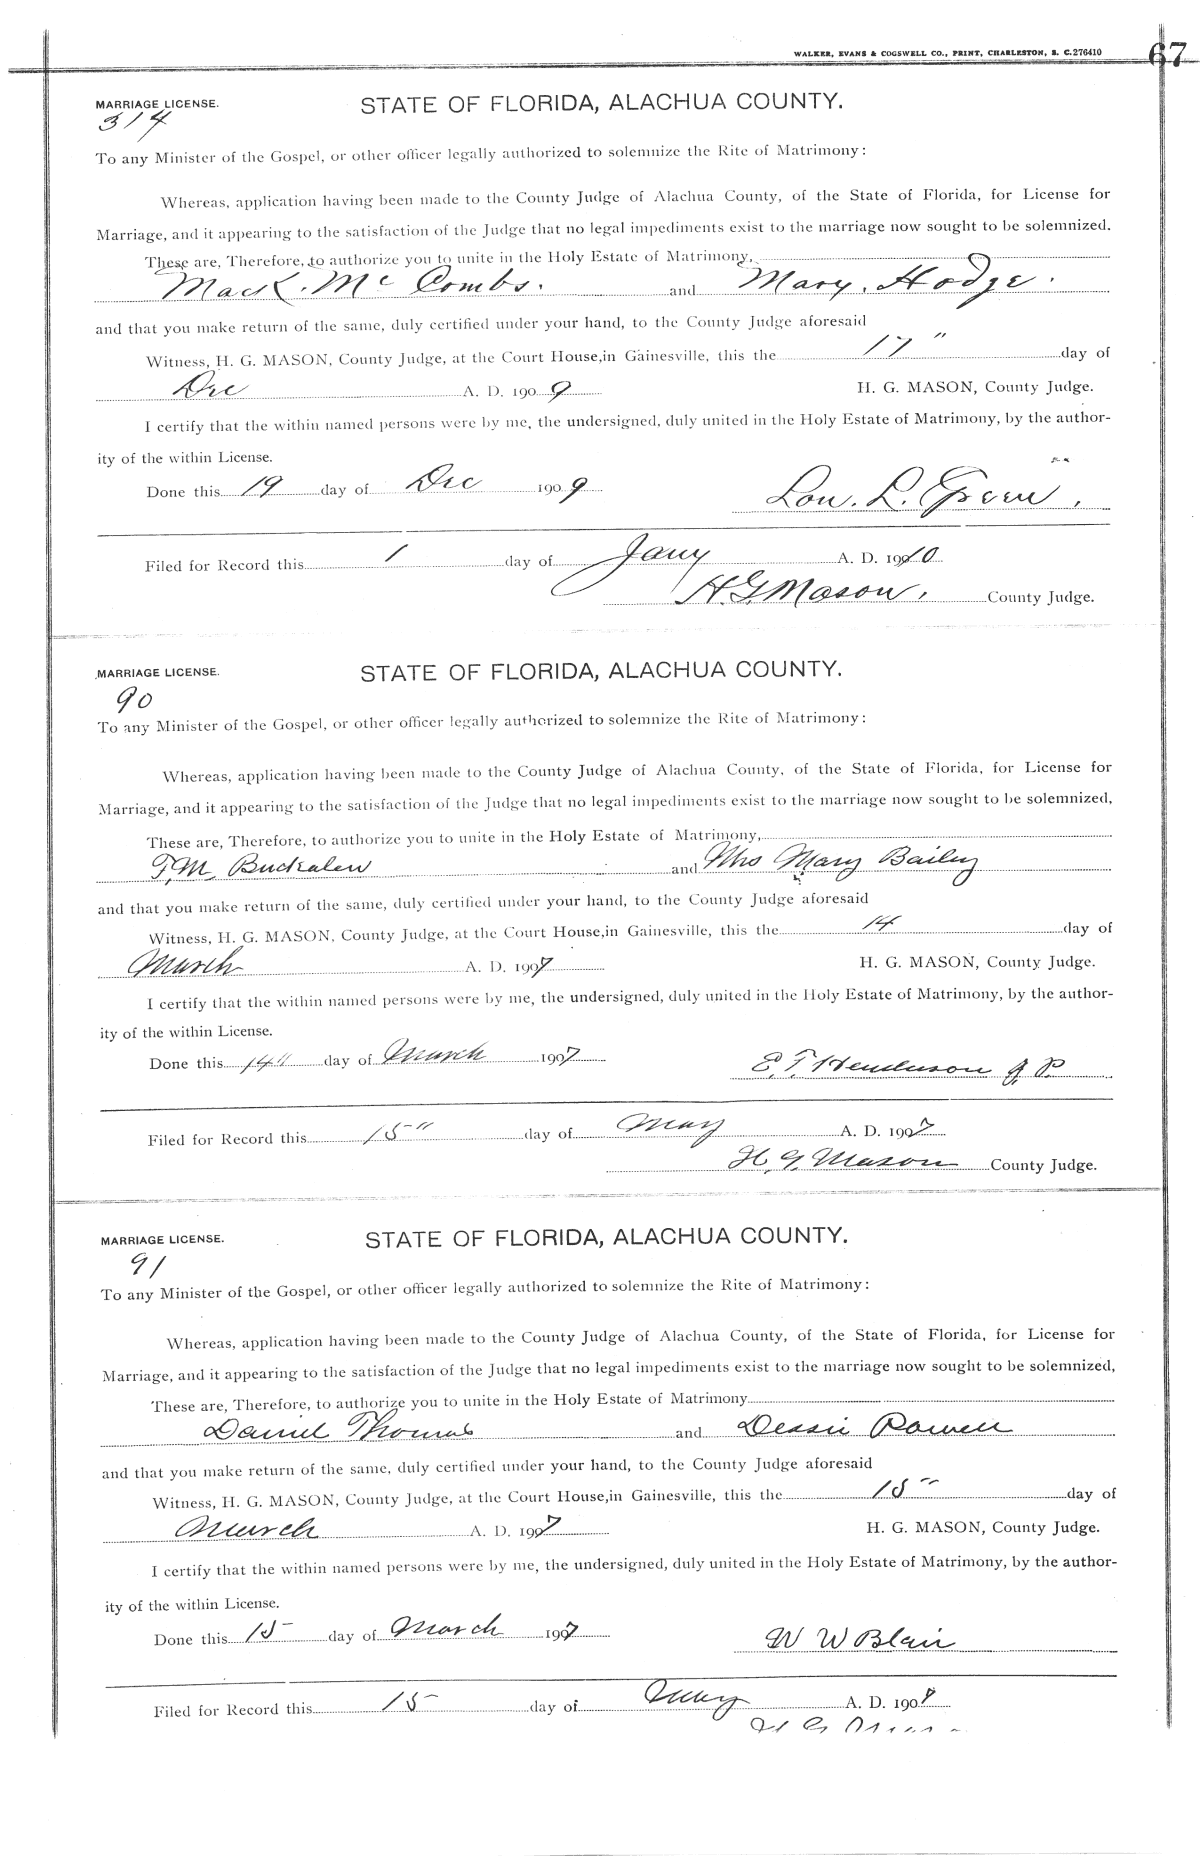 WALKER, EVANS & COGSWELL CO., PRINT, CHARLESTON, S. C. 276410
67
MARRIAGE LICENSE.
STATE OF FLORIDA, ALACHUA COUNTY.
314
To any Minister of the Gospel, or other officer legally authorized to solemnize the Rite of Matrimony:
Whereas, application having been made to the County Judge of Alachua County, of the State of Florida, for License for
Marriage, and it appearing to the satisfaction of the Judge that no legal impediments exist to the marriage now sought to be solemnized.
These are, Therefore, to authorize you to unite in the Holy Estate of Matrimony,
Mack. Mc Combs. and Mary. Hodge.
and that you make return of the same, duly certified under your hand, to the County Judge aforesaid
Witness, H. G. MASON, County Judge, at the Court House, in Gainesville, this the 17" day of
Dec A. D. 1909 H. G. MASON, County Judge.
I certify that the within named persons were by me, the undersigned, duly united in the Holy Estate of Matrimony, by the author-
ity of the within License.
Done this 19 day of Dec 1909 Lon. L. Green.
Filed for Record this 1 day of Jany A. D. 1910
H. G. Mason, County Judge.
MARRIAGE LICENSE.
STATE OF FLORIDA, ALACHUA COUNTY.
90
To any Minister of the Gospel, or other officer legally authorized to solemnize the Rite of Matrimony:
Whereas, application having been made to the County Judge of Alachua County, of the State of Florida, for License for
Marriage, and it appearing to the satisfaction of the Judge that no legal impediments exist to the marriage now sought to be solemnized,
These are, Therefore, to authorize you to unite in the Holy Estate of Matrimony,
T. M. Buckalew and Mrs Mary Bailey
and that you make return of the same, duly certified under your hand, to the County Judge aforesaid
Witness, H. G. MASON, County Judge, at the Court House, in Gainesville, this the 14 day of
March A. D. 1907 H. G. MASON, County Judge.
I certify that the within named persons were by me, the undersigned, duly united in the Holy Estate of Matrimony, by the author-
ity of the within License.
Done this 14" day of March 1907 E. T. Henderson J. P.
Filed for Record this 15" day of May A. D. 1907
H. G. Mason County Judge.
MARRIAGE LICENSE.
STATE OF FLORIDA, ALACHUA COUNTY.
91
To any Minister of the Gospel, or other officer legally authorized to solemnize the Rite of Matrimony:
Whereas, application having been made to the County Judge of Alachua County, of the State of Florida, for License for
Marriage, and it appearing to the satisfaction of the Judge that no legal impediments exist to the marriage now sought to be solemnized,
These are, Therefore, to authorize you to unite in the Holy Estate of Matrimony
Daniel Thomas and Dessie Powell
and that you make return of the same, duly certified under your hand, to the County Judge aforesaid
Witness, H. G. MASON, County Judge, at the Court House, in Gainesville, this the 15" day of
March A. D. 1907 H. G. MASON, County Judge.
I certify that the within named persons were by me, the undersigned, duly united in the Holy Estate of Matrimony, by the author-
ity of the within License.
Done this 15 day of March 1907 W W Blair
Filed for Record this 15 day of May A. D. 190